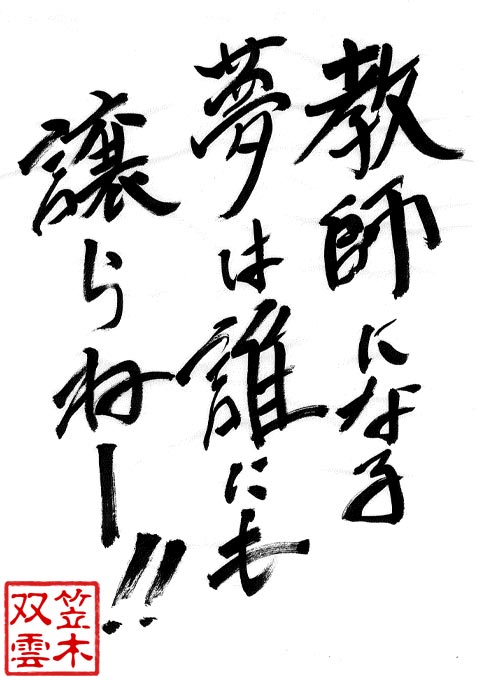 教師になる
夢は誰にも
譲らねー!!
笠木
双雲